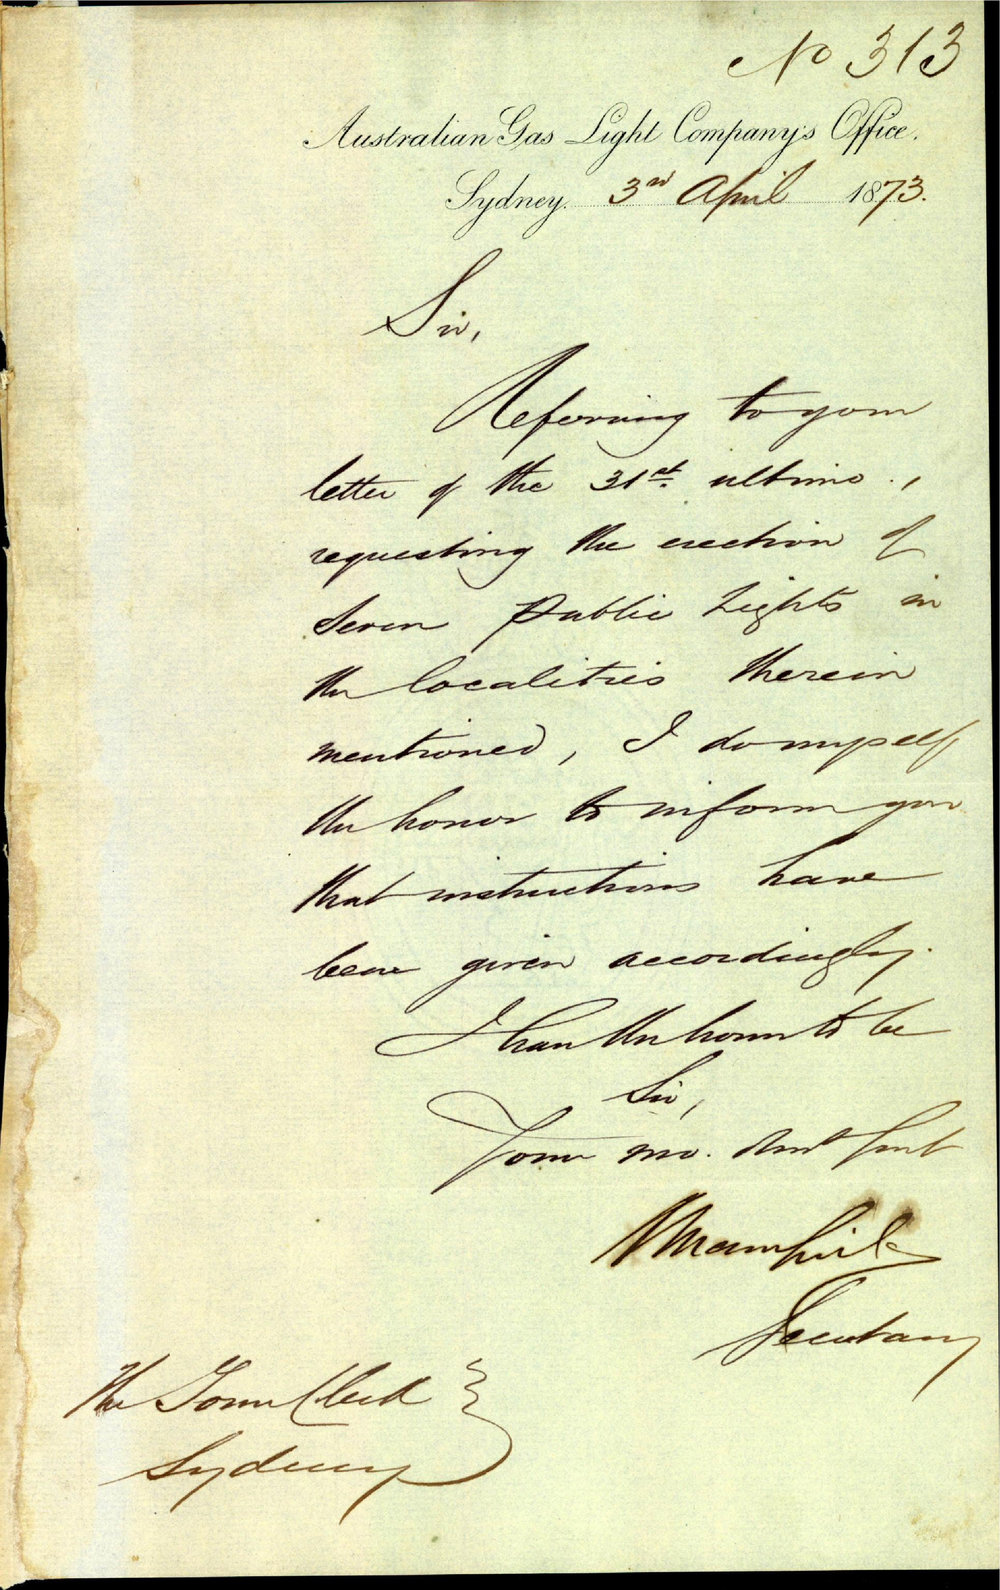 No 313
Australian Gas Light Company's Office.
Sydney. 3rd April 1873.
Sir,
Referring to your
letter of the 31st. ultimo.,
requesting the erection of
seven Public Lights in
the localities therein
mentioned, I do myself
the honor to inform you
that instructions have
been given accordingly.
I have the honor to be
Sir,
Your mo. Obnt Servt
Secretary
The Town Clerk
Sydney